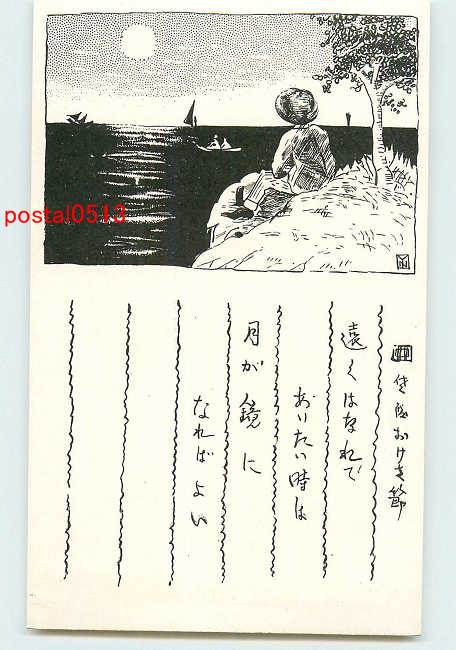 佐渡おけさ節
遠くはなれて
あいたい時は
月が鏡に
なればよい
postal0513